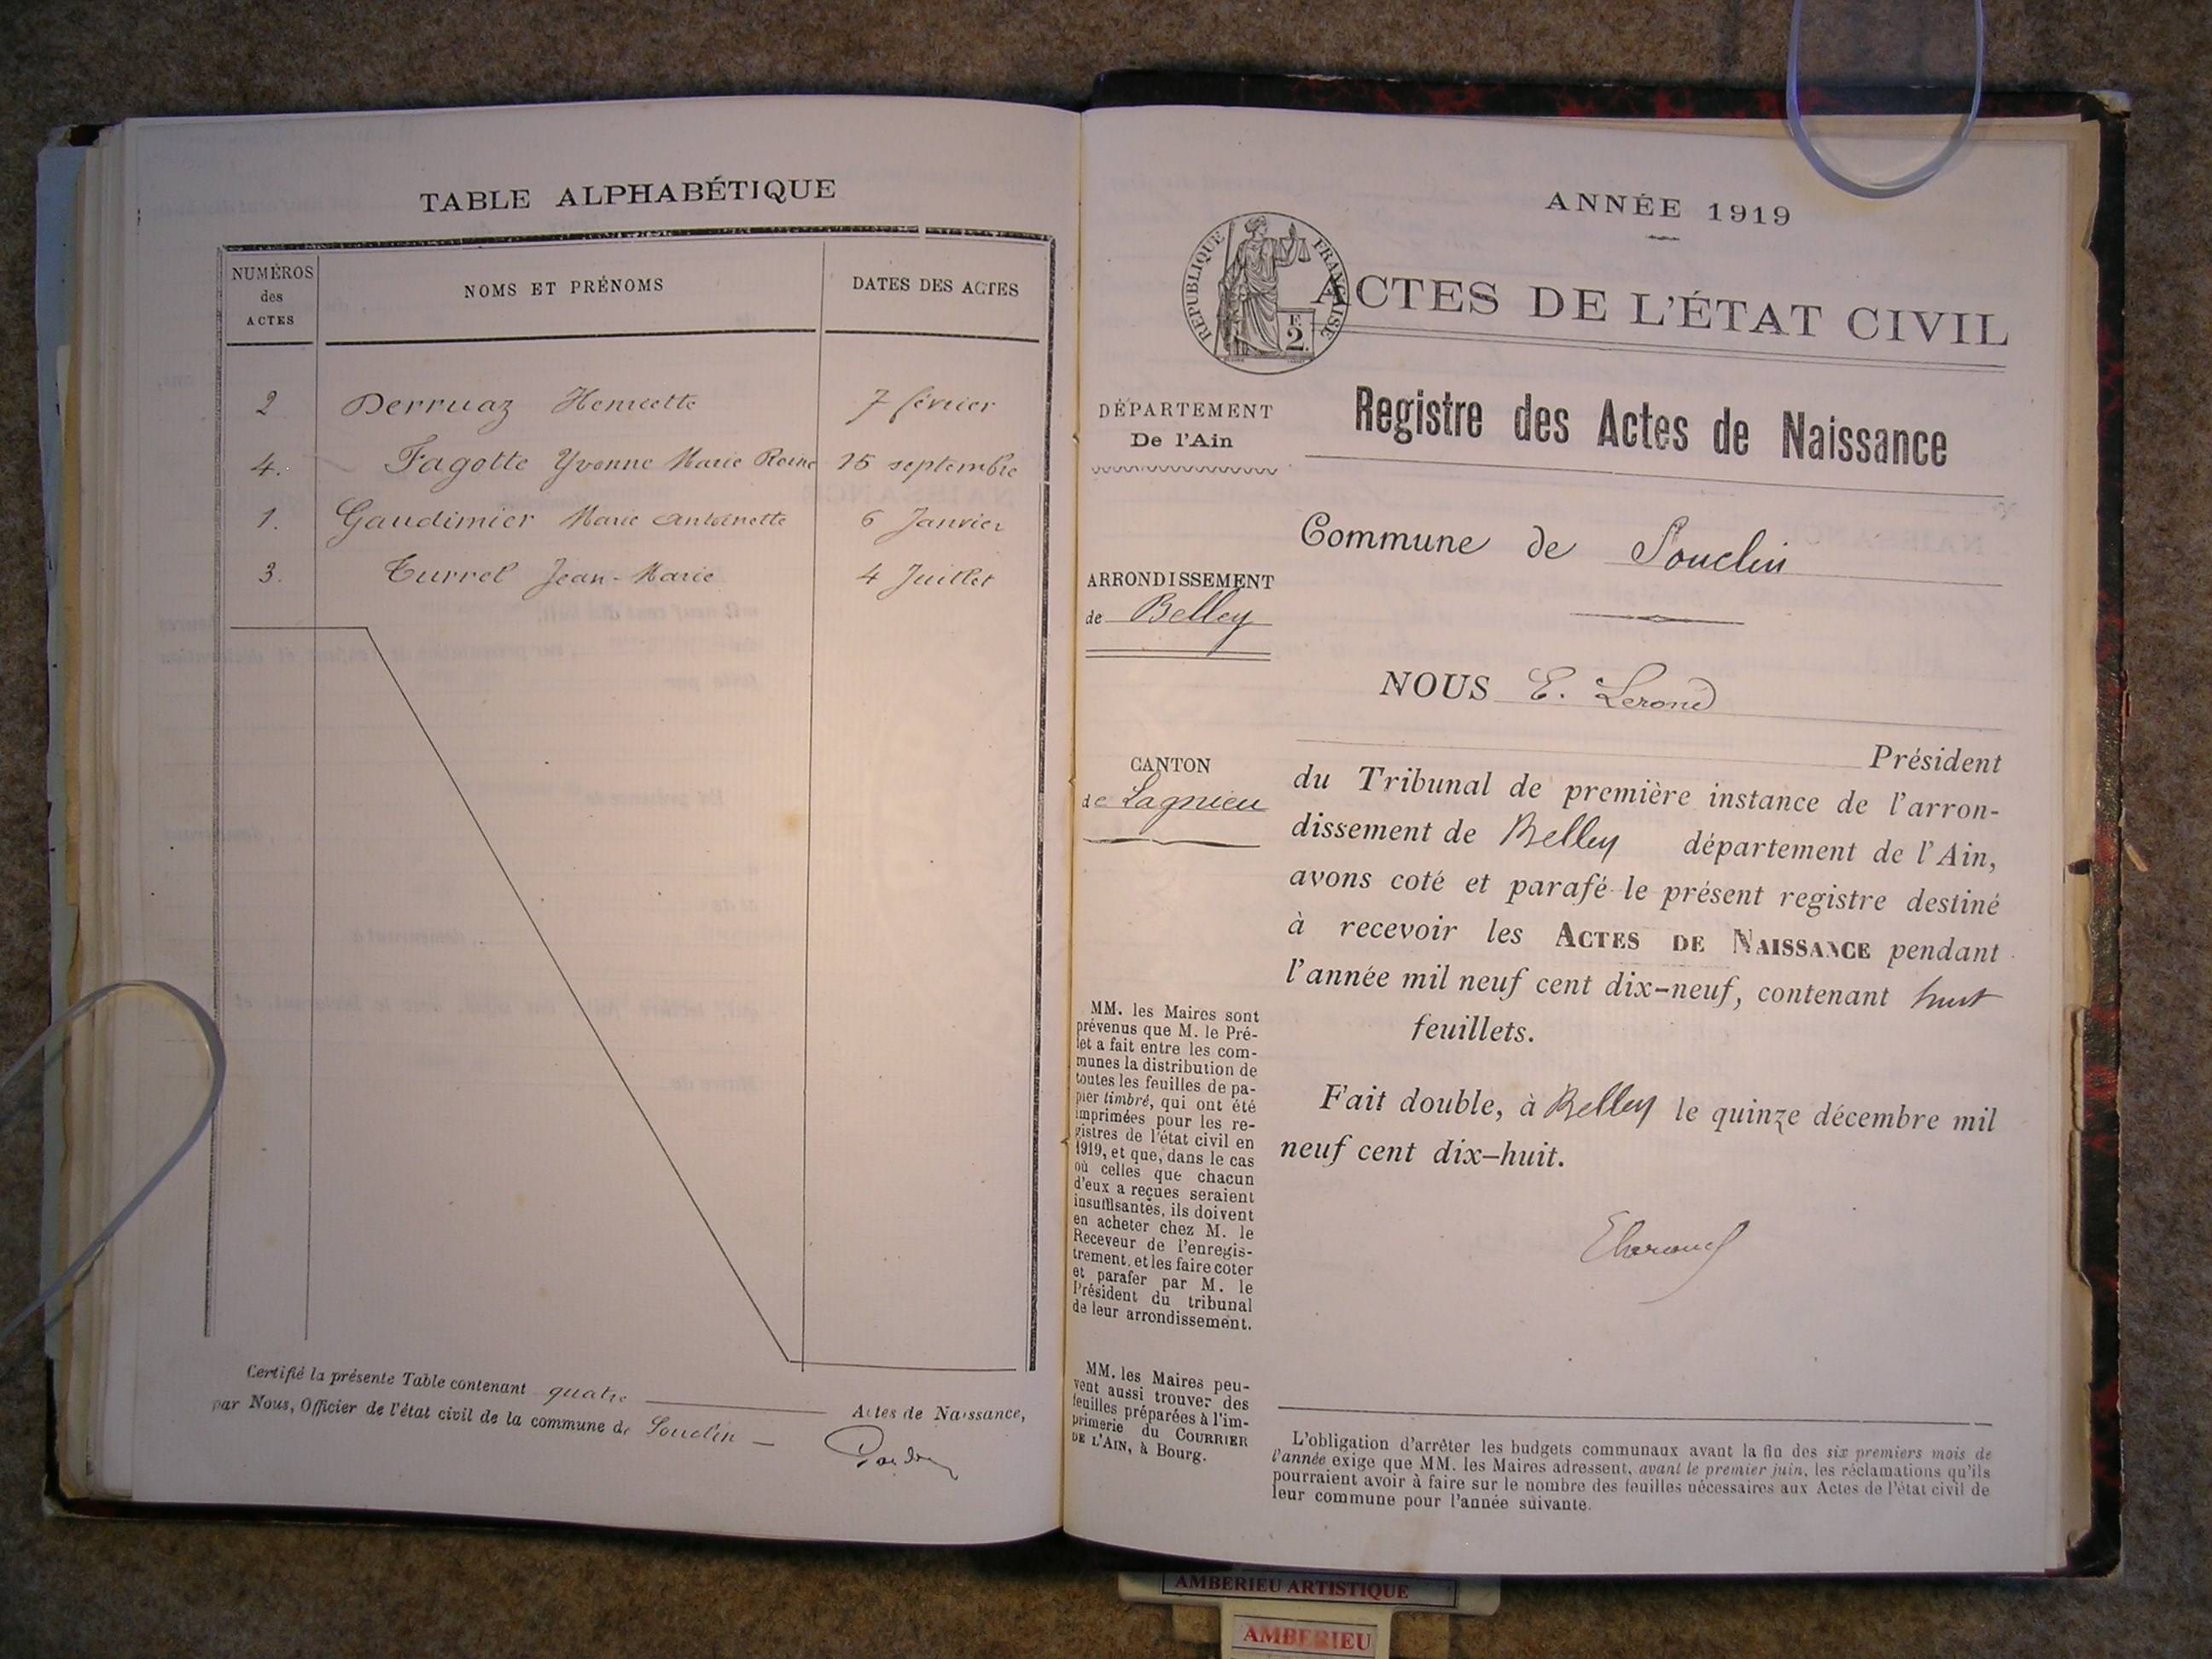 TABLE ALPHABÉTIQUE
NUMÉROS
des
ACTES
NOMS ET PRÉNOMS
DATES DES ACTES
2 Derruaz Henriette 7 février
4. Fagotte Yvonne Marie Reine 15 septembre
1. Gaudimier Marie Antoinette 6 Janvier
3. Turrel Jean-Marie 4 Juillet
Certifié la présente Table contenant quatre Actes de Naissance,
par Nous, Officier de l'état civil de la commune de Souclin
ANNÉE 1919
RÉPUBLIQUE FRANÇAISE
F.
2.
ACTES DE L'ÉTAT CIVIL
DÉPARTEMENT
De l'Ain
Registre des Actes de Naissance
Commune de Souclin
ARRONDISSEMENT
de Belley
NOUS E. Lerond
Président
CANTON
de Lagnieu
du Tribunal de première instance de l'arron-
dissement de Belley département de l'Ain,
avons coté et parafé le présent registre destiné
à recevoir les ACTES DE NAISSANCE pendant
l'année mil neuf cent dix-neuf, contenant huit
feuillets.
Fait double, à Belley le quinze décembre mil
neuf cent dix-huit.
MM. les Maires sont
prévenus que M. le Pré-
fet a fait entre les com-
munes la distribution de
toutes les feuilles de pa-
pier timbré, qui ont été
imprimées pour les re-
gistres de l'état civil en
1919, et que, dans le cas
où celles que chacun
d'eux a reçues seraient
insuffisantes, ils doivent
en acheter chez M. le
Receveur de l'enregis-
trement, et les faire coter
et parafer par M. le
Président du tribunal
de leur arrondissement.
MM. les Maires peu-
vent aussi trouver des
feuilles préparées à l'im-
primerie du COURRIER
DE L'AIN, à Bourg.
L'obligation d'arrêter les budgets communaux avant la fin des six premiers mois de
l'année exige que MM. les Maires adressent, avant le premier juin, les réclamations qu'ils
pourraient avoir à faire sur le nombre des feuilles nécessaires aux Actes de l'état civil de
leur commune pour l'année suivante.
AMBERIEU ARTISTIQUE
AMBERIEU